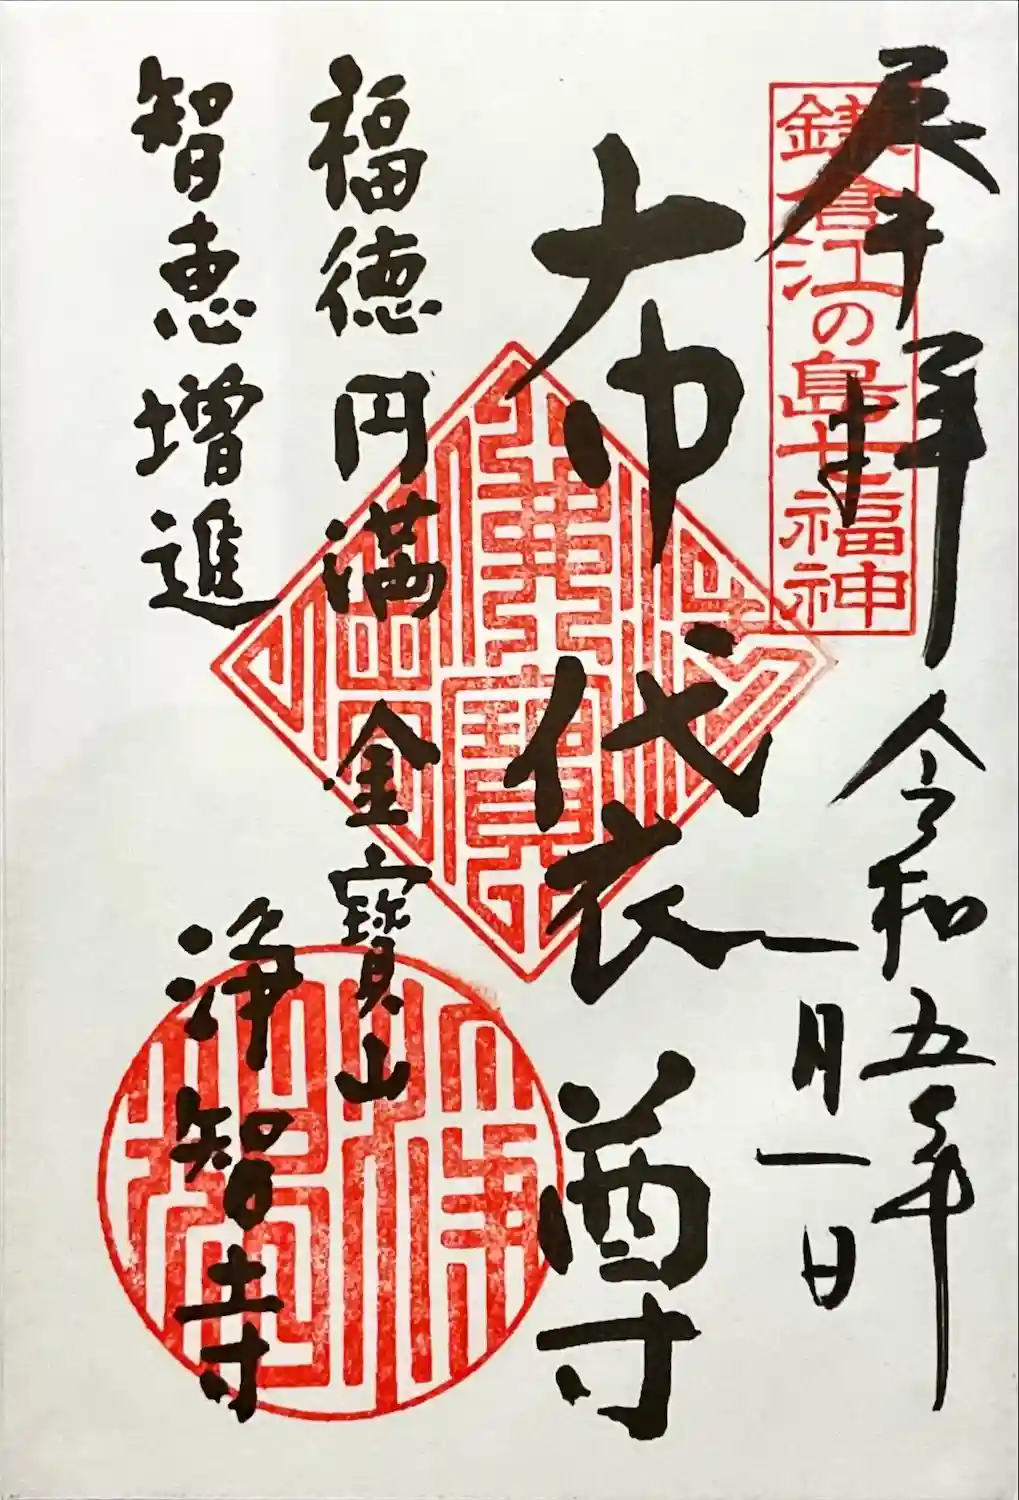 奉拝
鎌倉江の島七福神
令和五年
一月一日
布袋尊
福徳円満
金寶山
智恵増進
浄智寺